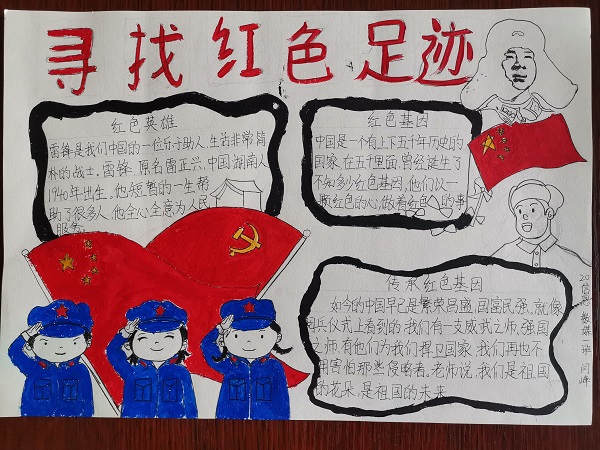 寻找红色足迹
红色英雄
雷锋是我们中国的一位乐于助人,生活非常简
朴的战士。雷锋,原名雷正兴,中国湖南人
1940年出生。他短暂的一生帮
助了很多人,他全心全意为人民
服务
红色基因
中国是一个有上下五千年历史的
国家,在五千里面,曾经诞生了
不知多少红色基因,他们以一
颗红色的心,做着红色的事
传承红色基因
如今的中国早已是繁荣昌盛,国富民强。就像
阅兵仪式上看到的,我们有一支威武之师,强国
之师,有他们为我们捍卫国家,我们再也不
用害怕那些侵略者。老师说,我们是祖国
的花朵,是祖国的未来